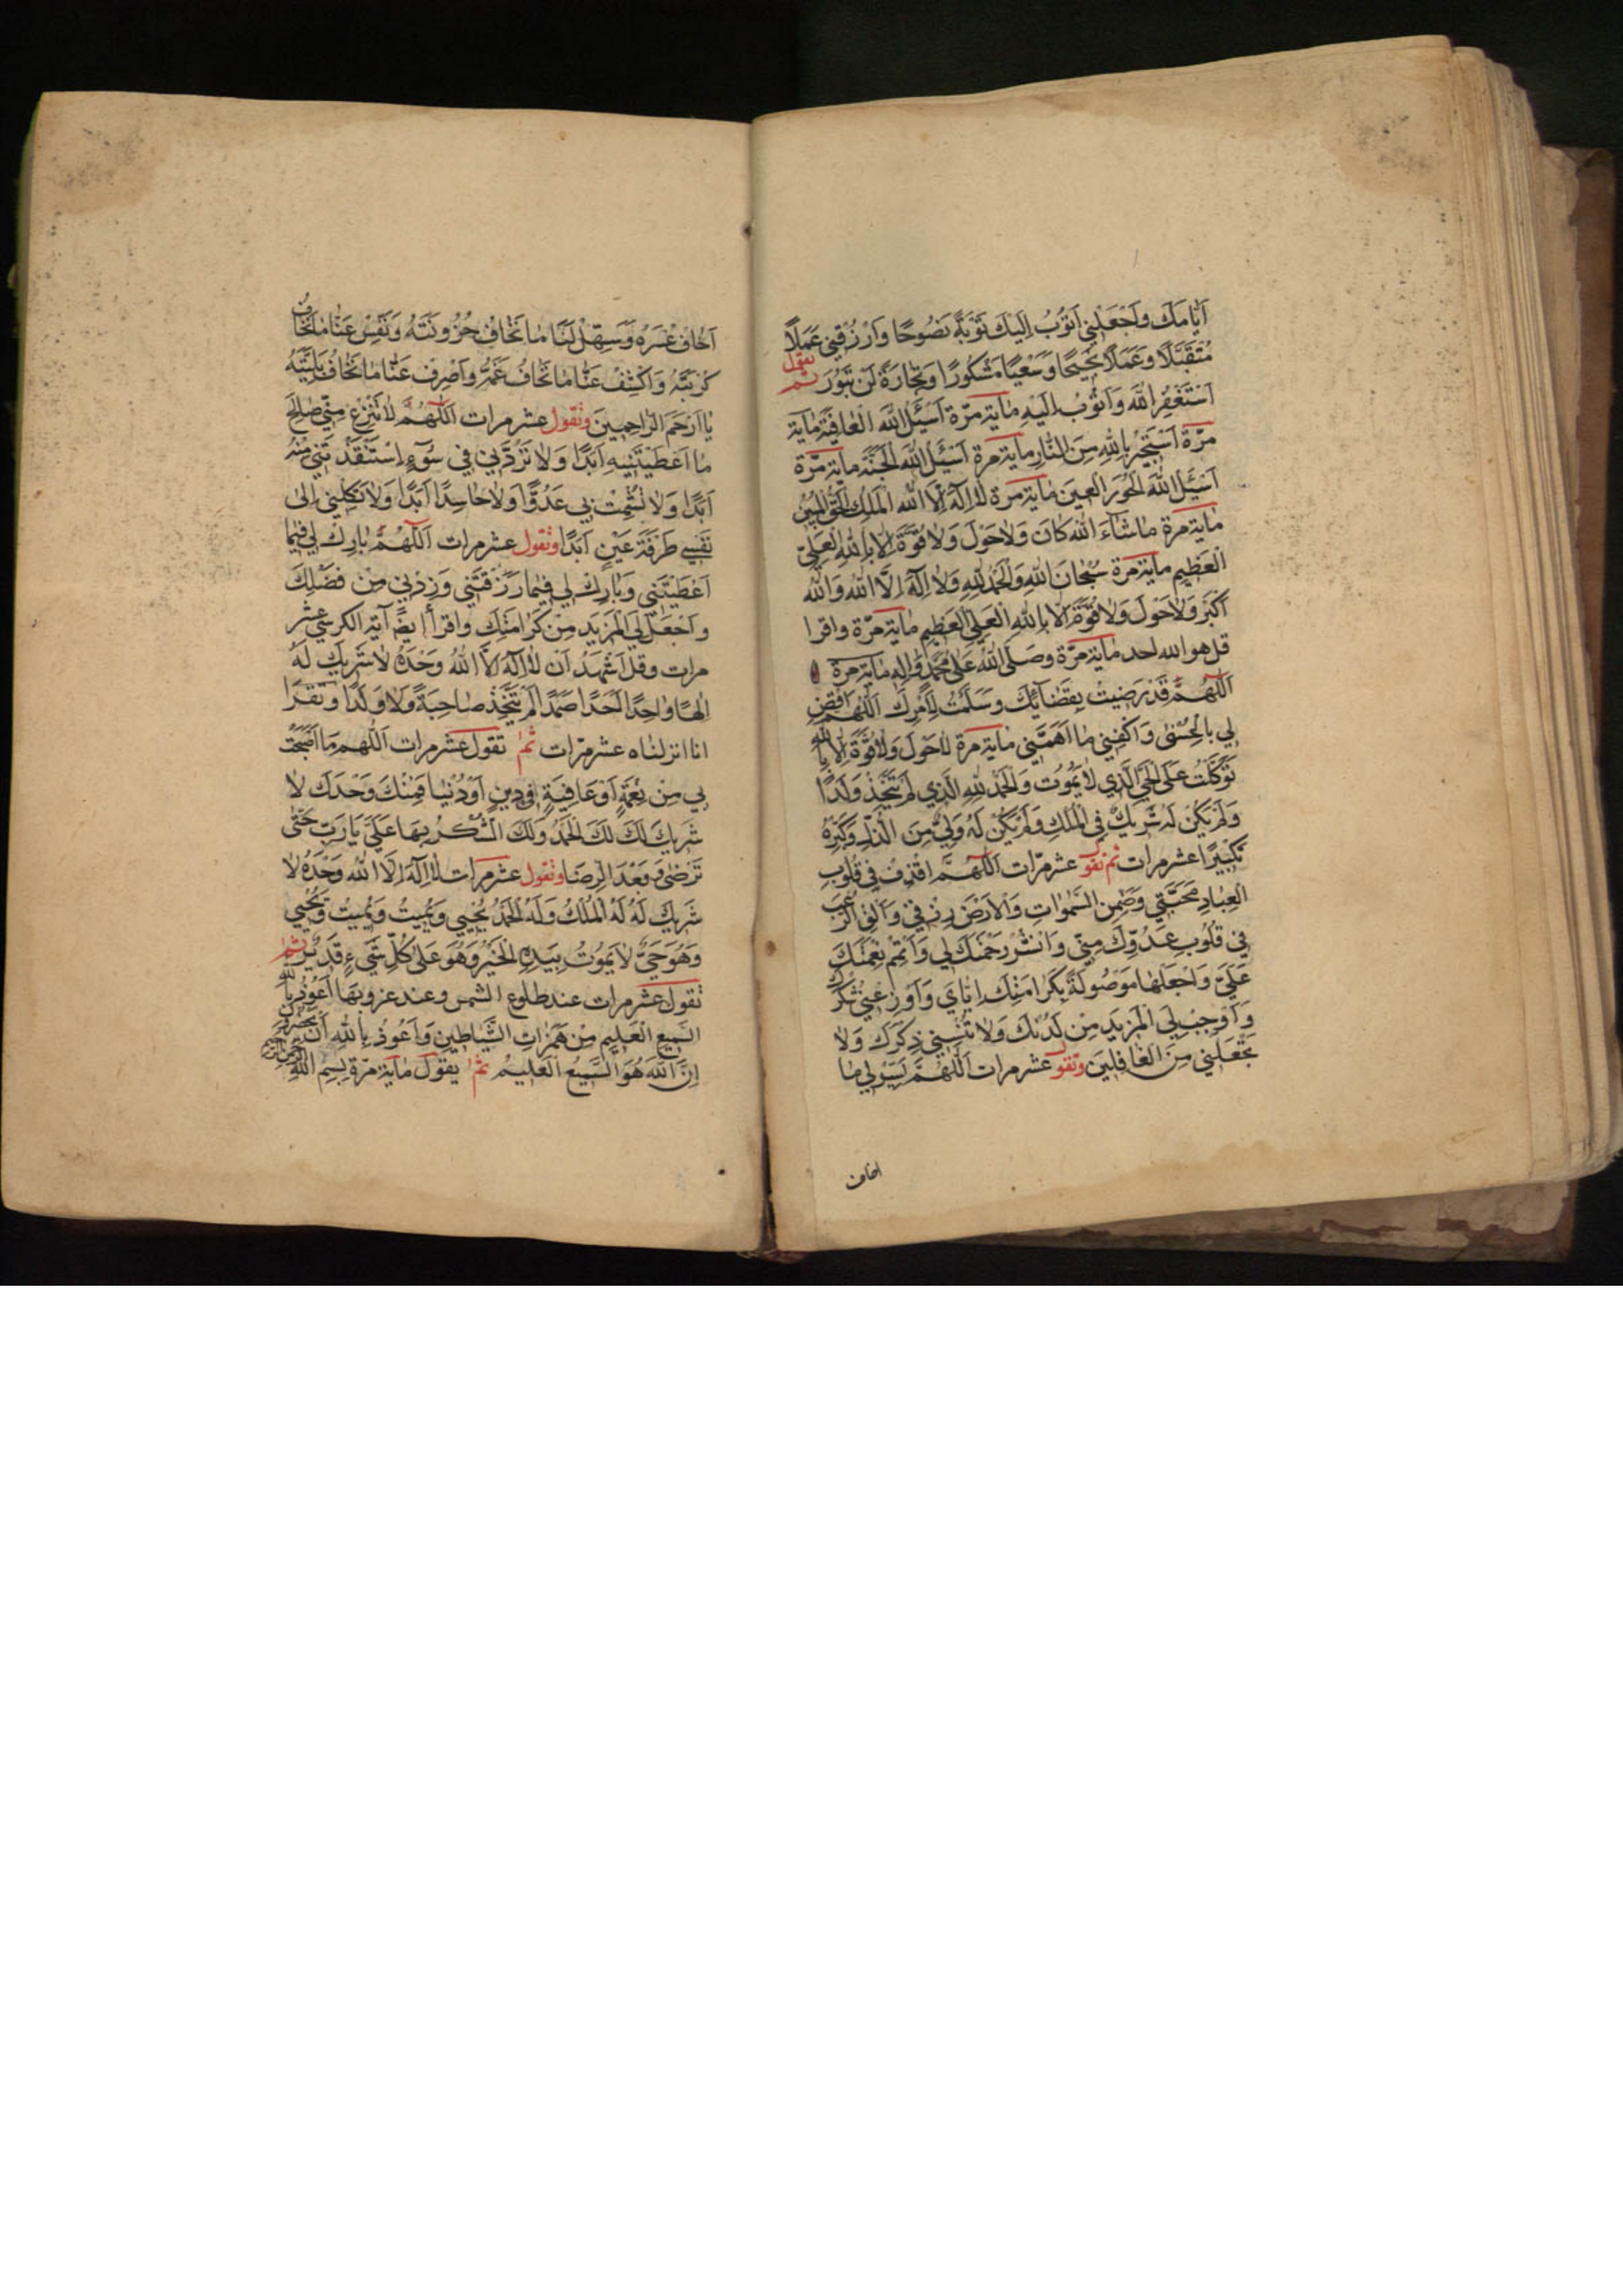 اَيَّامَكَ وَاجْعَلْنِي اَتُوبُ اِلَيْكَ تَوْبَةً نَصُوحًا وَارْزُقْنِي عَمَلًا
مُتَقَبَّلًا وَعَمَلًا نَجِيحًا وَسَعْيًا مَشْكُورًا وَتِجَارَةً لَنْ تَبُورَ ثم يقول
اَسْتَغْفِرُ اللهَ وَاَتُوبُ اِلَيْهِ مٰاية مرّة اَسْئَلُ اللهَ الْعٰافِيَةَ مٰاية
مرّة اَسْتَجِيرُ بِاللهِ مِنَ النّٰارِ مٰاية مرة اَسْئَلُ اللهَ الْجَنَّةَ ماية مرّة
اَسْئَلُ اللهَ الْحُورَ الْعِينَ مٰاية مرة لٰا اِلٰهَ اِلَّا اللهُ الْمَلِكُ الْحَقُّ الْمُبِينُ
مٰاية مرة مٰا شٰاءَ اللهُ كٰانَ وَلٰا حَوْلَ وَلٰا قُوَّةَ اِلَّا بِاللهِ الْعَلِيِّ
الْعَظِيمِ ماية مرة سُبْحٰانَ اللهِ وَالْحَمْدُ لِلّٰهِ وَلٰا اِلٰهَ اِلَّا اللهُ وَاللهُ
اَكْبَرُ وَلٰا حَوْلَ وَلٰا قُوَّةَ اِلَّا بِاللهِ الْعَلِيِّ الْعَظِيمِ مٰاية مرّة واقرا
قل هو الله احد ماية مرّة وصَلَّى اللهُ عَلٰى مُحَمَّدٍ وَاٰلِهِ مٰاية مرة
اَللّٰهُمَّ قَدْ رَضِيتُ بِقَضٰائِكَ وَسَلَّمْتُ لِاَمْرِكَ اَللّٰهُمَّ اقْضِ
لِي بِالْحُسْنٰى وَاكْفِنِي مٰا اَهَمَّنِي مٰاية مرة لٰا حَوْلَ وَلٰا قُوَّةَ اِلَّا بِاللهِ
تَوَكَّلْتُ عَلَى الْحَيِّ الَّذِي لٰا يَمُوتُ وَالْحَمْدُ لِلّٰهِ الَّذِي لَمْ يَتَّخِذْ وَلَدًا
وَلَمْ يَكُنْ لَهُ شَرِيكٌ فِي الْمُلْكِ وَلَمْ يَكُنْ لَهُ وَلِيٌّ مِنَ الذُّلِّ وَكَبِّرْهُ
تَكْبِيرًا عشر مرات ثم تقول عشر مرّات اَللّٰهُمَّ اقْذِفْ فِي قُلُوبِ
الْعِبٰادِ مَحَبَّتِي وَضَمِّنِ السَّمٰوٰاتِ وَالْاَرْضَ رِزْقِي وَاَلْقِ الرُّعْبَ
فِي قُلُوبِ عَدُوِّكَ مِنِّي وَانْشُرْ رَحْمَتَكَ لِي وَاَتْمِمْ نِعْمَتَكَ
عَلَيَّ وَاجْعَلْهٰا مَوْصُولَةً بِكَرٰامَتِكَ اِيّٰايَ وَاَوْزِعْنِي شُكْرَكَ
وَاَوْجِبْ لِيَ الْمَزِيدَ مِنْ لَدُنْكَ وَلٰا تُنْسِنِي ذِكْرَكَ وَلٰا
تَجْعَلْنِي مِنَ الْغٰافِلِينَ وتقول عشر مرات اَللّٰهُمَّ يَسِّرْ لِي مٰا
اخاف
اَخٰافُ عُسْرَهُ وَسَهِّلْ لَنٰا مٰا نَخٰافُ حُزُونَتَهُ وَنَفِّسْ عَنّٰا مٰا نَخٰافُ
كُرْبَتَهُ وَاكْشِفْ عَنّٰا مٰا نَخٰافُ غَمَّهُ وَاَصْرِفْ عَنّٰا مٰا نَخٰافُ بَلِيَّتَهُ
يٰا اَرْحَمَ الرّٰاحِمِينَ وتقول عشر مرات اَللّٰهُمَّ لٰا تَنْزِعْ مِنِّي صٰالِحَ
مٰا اَعْطَيْتَنِيهِ اَبَدًا وَلٰا تَرُدَّنِي فِي سُوءٍ اِسْتَنْقَذْتَنِي مِنْهُ
اَبَدًا وَلٰا تُشْمِتْ بِي عَدُوًّا وَلٰا حٰاسِدًا اَبَدًا وَلٰا تَكِلْنِي اِلٰى
نَفْسِي طَرْفَةَ عَيْنٍ اَبَدًا وتقول عشر مرات اَللّٰهُمَّ بٰارِكْ لِي فِيمٰا
اَعْطَيْتَنِي وَبٰارِكْ لِي فِيمٰا رَزَقْتَنِي وَزِدْنِي مِنْ فَضْلِكَ
وَاجْعَلْ لِيَ الْمَزِيدَ مِنْ كَرٰامَتِكَ واقرأ ايضًا آية الكرسي عشر
مرات وقل اَشْهَدُ اَنْ لٰا اِلٰهَ اِلَّا اللهُ وَحْدَهُ لٰا شَرِيكَ لَهُ
اِلٰهًا وٰاحِدًا اَحَدًا صَمَدًا لَمْ يَتَّخِذْ صٰاحِبَةً وَلٰا وَلَدًا وتقرا
انا انزلناه عشر مرّات ثم تقول عشر مرات اَللّٰهُمَّ مٰا اَصْبَحَتْ
بِي مِنْ نِعْمَةٍ اَوْ عٰافِيَةٍ فِي دِينٍ اَوْ دُنْيٰا فَمِنْكَ وَحْدَكَ لٰا
شَرِيكَ لَكَ لَكَ الْحَمْدُ وَلَكَ الشُّكْرُ بِهٰا عَلَيَّ يٰا رَبِّ حَتّٰى
تَرْضٰى وَبَعْدَ الرِّضٰا وتقول عشر مرات لٰا اِلٰهَ اِلَّا اللهُ وَحْدَهُ لٰا
شَرِيكَ لَهُ لَهُ الْمُلْكُ وَلَهُ الْحَمْدُ يُحْيِي وَيُمِيتُ وَيُمِيتُ وَيُحْيِي
وَهُوَ حَيٌّ لٰا يَمُوتُ بِيَدِهِ الْخَيْرُ وَهُوَ عَلٰى كُلِّ شَيْءٍ قَدِيرٌ ثم
تقول عشر مرات عند طلوع الشمس وعند غروبها اَعُوذُ بِاللهِ
السَّمِيعِ الْعَلِيمِ مِنْ هَمَزٰاتِ الشَّيٰاطِينِ وَاَعُوذُ بِاللهِ اَنْ يَحْضُرُونِ
اِنَّ اللهَ هُوَ السَّمِيعُ الْعَلِيمُ ثم يقول مٰاية مرّة بِسْمِ اللهِ الرَّحْمٰنِ الرَّحِيمِ